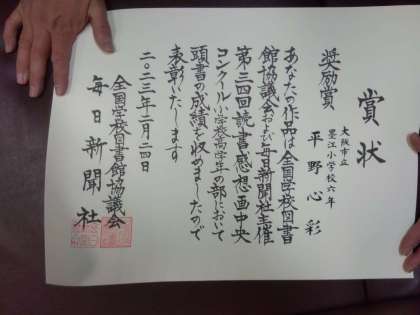 賞状
奨励賞
大阪市立
墨江小学校六年
平野心彩
あなたの作品は全国学校図書
館協議会および毎日新聞社主催
第三四回読書感想画中央
コンクール小学校高学年の部において
頭書の成績を収めましたので
表彰いたします
二〇二三年二月二四日
全国学校図書館協議会
毎日新聞社